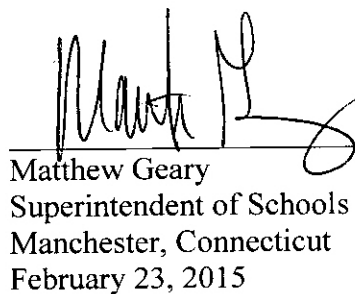 Matthew Geary
Superintendent of Schools
Manchester, Connecticut
February 23, 2015